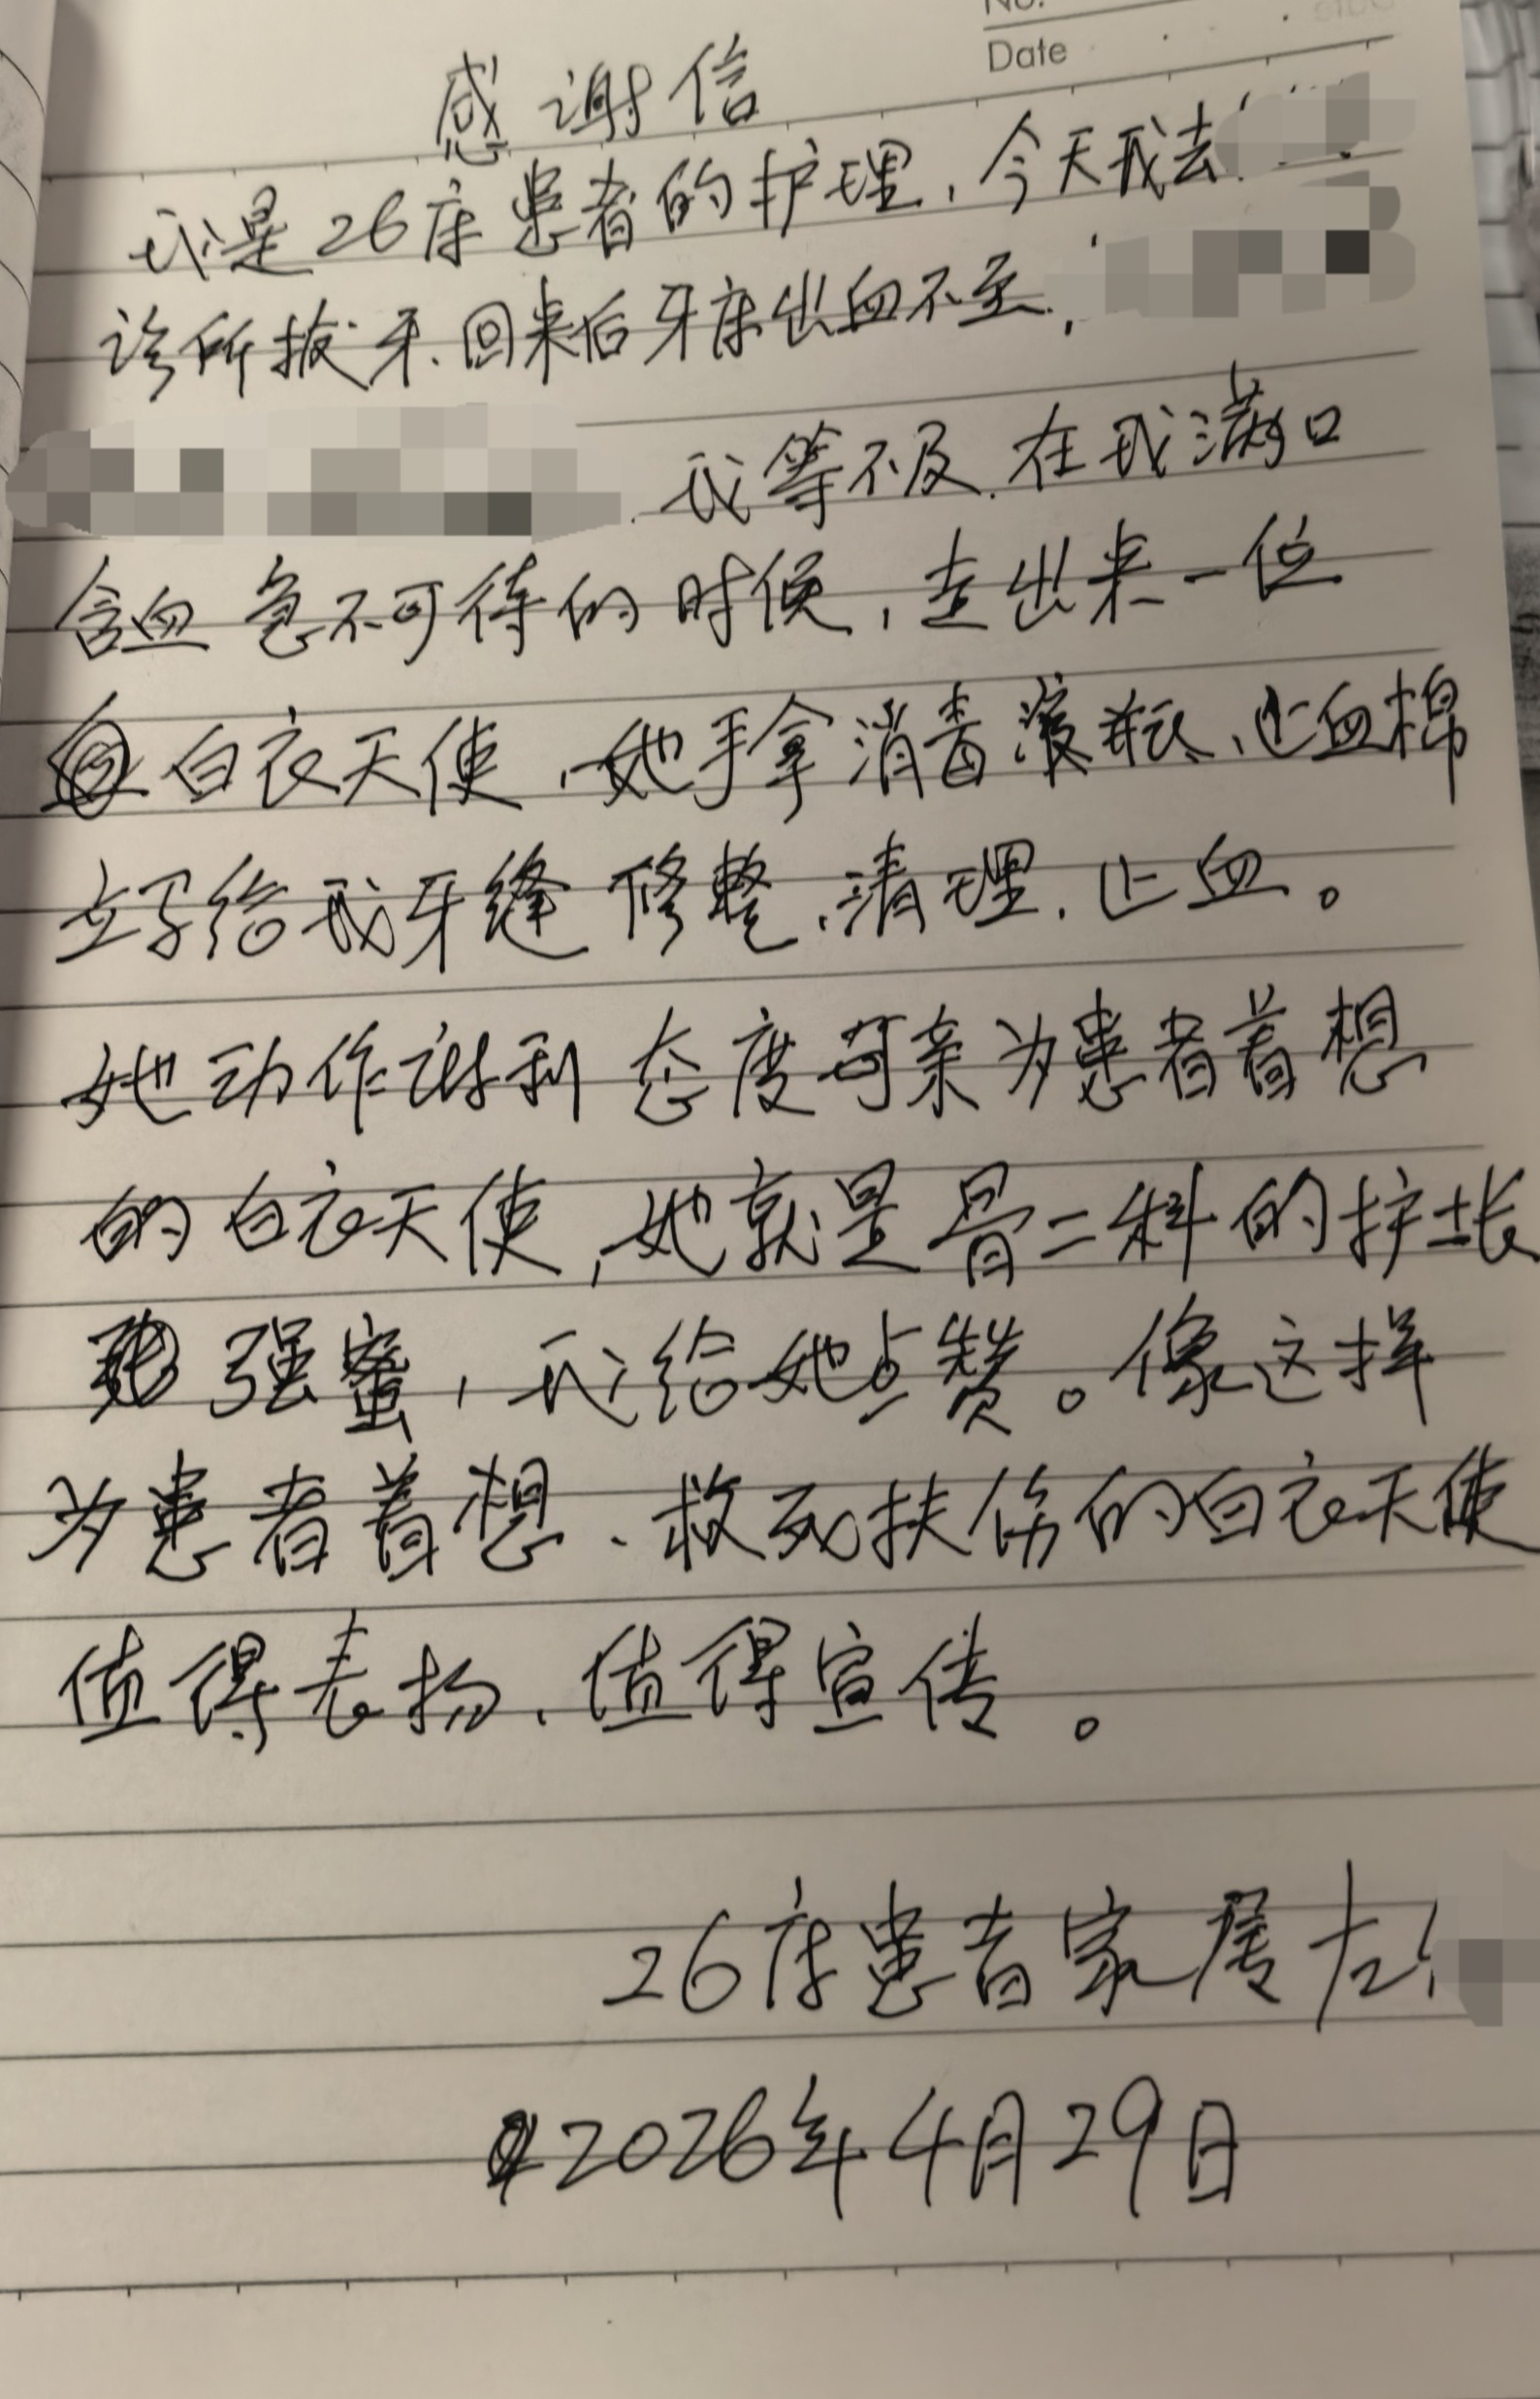 No.
Date
感谢信
我是26床患者的护理，今天我去
诊所拔牙、回来后牙床出血不至，
我等不及，在我满口
含血急不可待的时候，走出来一位
白衣天使，她手拿消毒液瓶、止血棉
立马给我牙缝修整、清理、止血。
她动作利 态度可亲为患者着想
的白衣天使，她就是骨二科的护士长
强蜜，我给她点赞。像这样
为患者着想、救死扶伤的白衣天使
值得表扬、值得宣传。
26床患者家属左
2026年4月29日